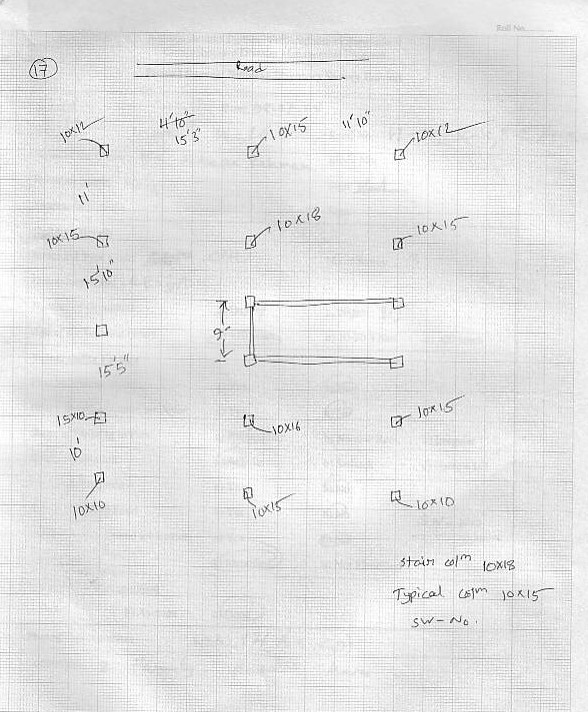 Roll No.
17
Road
10x12
4'10"
15'3"
10x15
11'10"
10x12
11'
10x15
10x18
10x15
15'10"
9'
15'5"
15x10
10x16
10x15
10'
10x10
10x15
10x10
stair colm 10x18
Typical colm 10x15
SW-No.